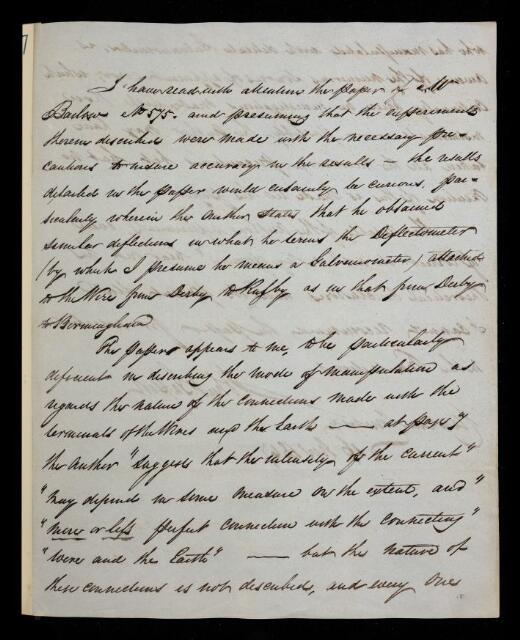 I have read with attention the paper of Mr
Barlow No 575. and presuming that the experiments
therein described were made with the necessary pre-
cautions to insure accuracy in the results — the results
detailed in the paper would certainly be curious, par-
ticularly wherein the Author states that he obtained
similar deflections in what he terms the Deflectometer
(by which I presume he means a Galvanometer) attached
to the Wire from Derby to Rugby as in that from Derby
to Birmingham
The Paper appears to me, to be particularly
deficient in describing the mode of manipulation as
regards the nature of the connections made with the
terminals of the Wires and the Earth — at page 7
the Author "suggests that the intensity of the current"
"may depend in some measure on the extent, and"
"more or less perfect connection with the connecting"
"Wire and the Earth" — but the nature of
these connections is not described, and every One